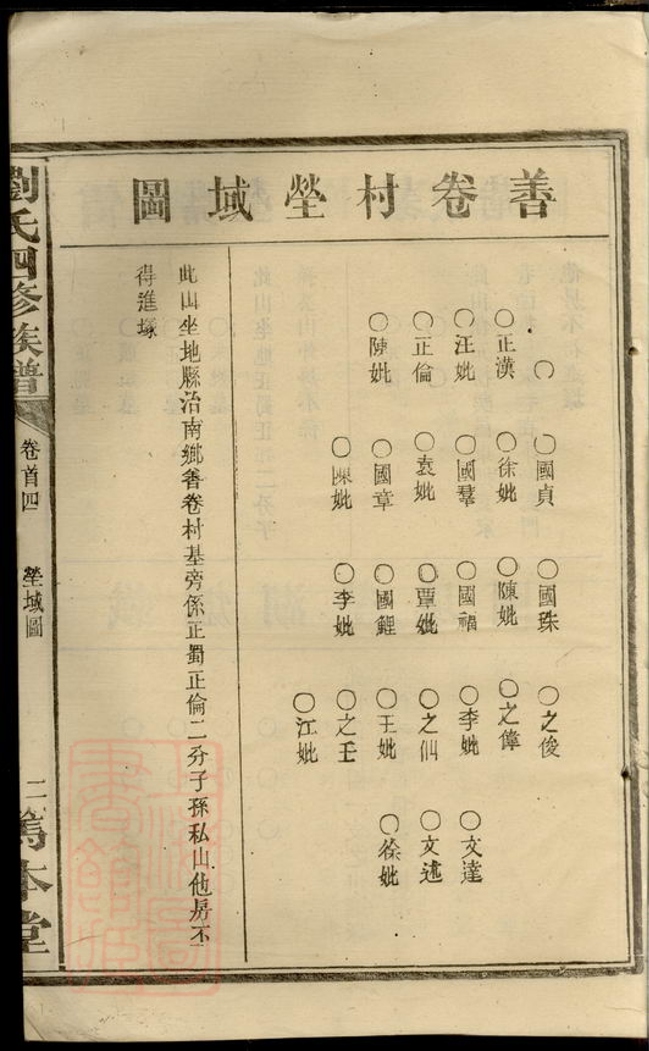 善卷村塋域圖
○
○正漢
○汪妣
○正倫
○陳妣
○國貞
○徐妣
○國羣
○袁妣
○國章
○陳妣
○國珠
○陳妣
○國福
○覃妣
○國鯉
○李妣
○之俊
○之偉
○李妣
○之仙
○王妣
○之壬
○江妣
○文達
○文述
○徐妣
此山坐地縣治南鄉善卷村基旁係正蜀正倫二分子孫私山他房不
得進塚
劉氏四修族譜
卷首四
塋域圖
二
篤本堂